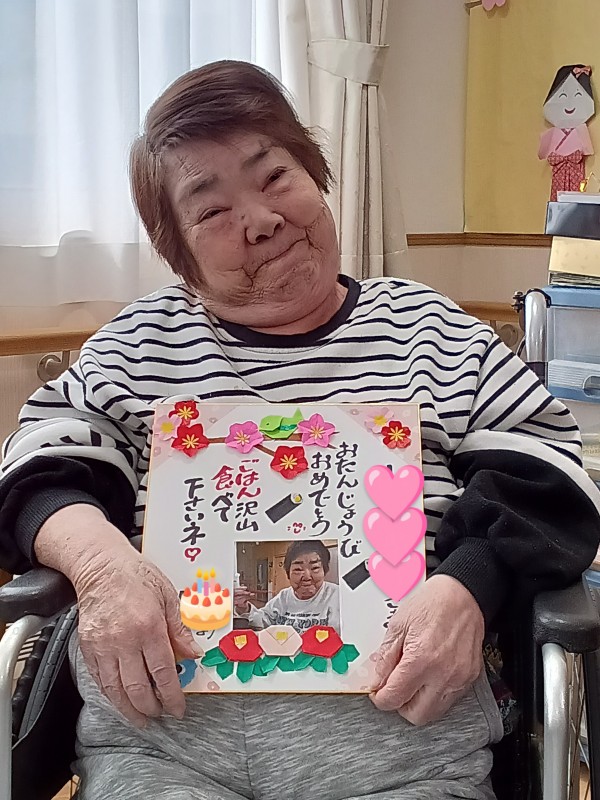 おたんじょうび
おめでとう
ごはん沢山
食べて
下さいネ♡